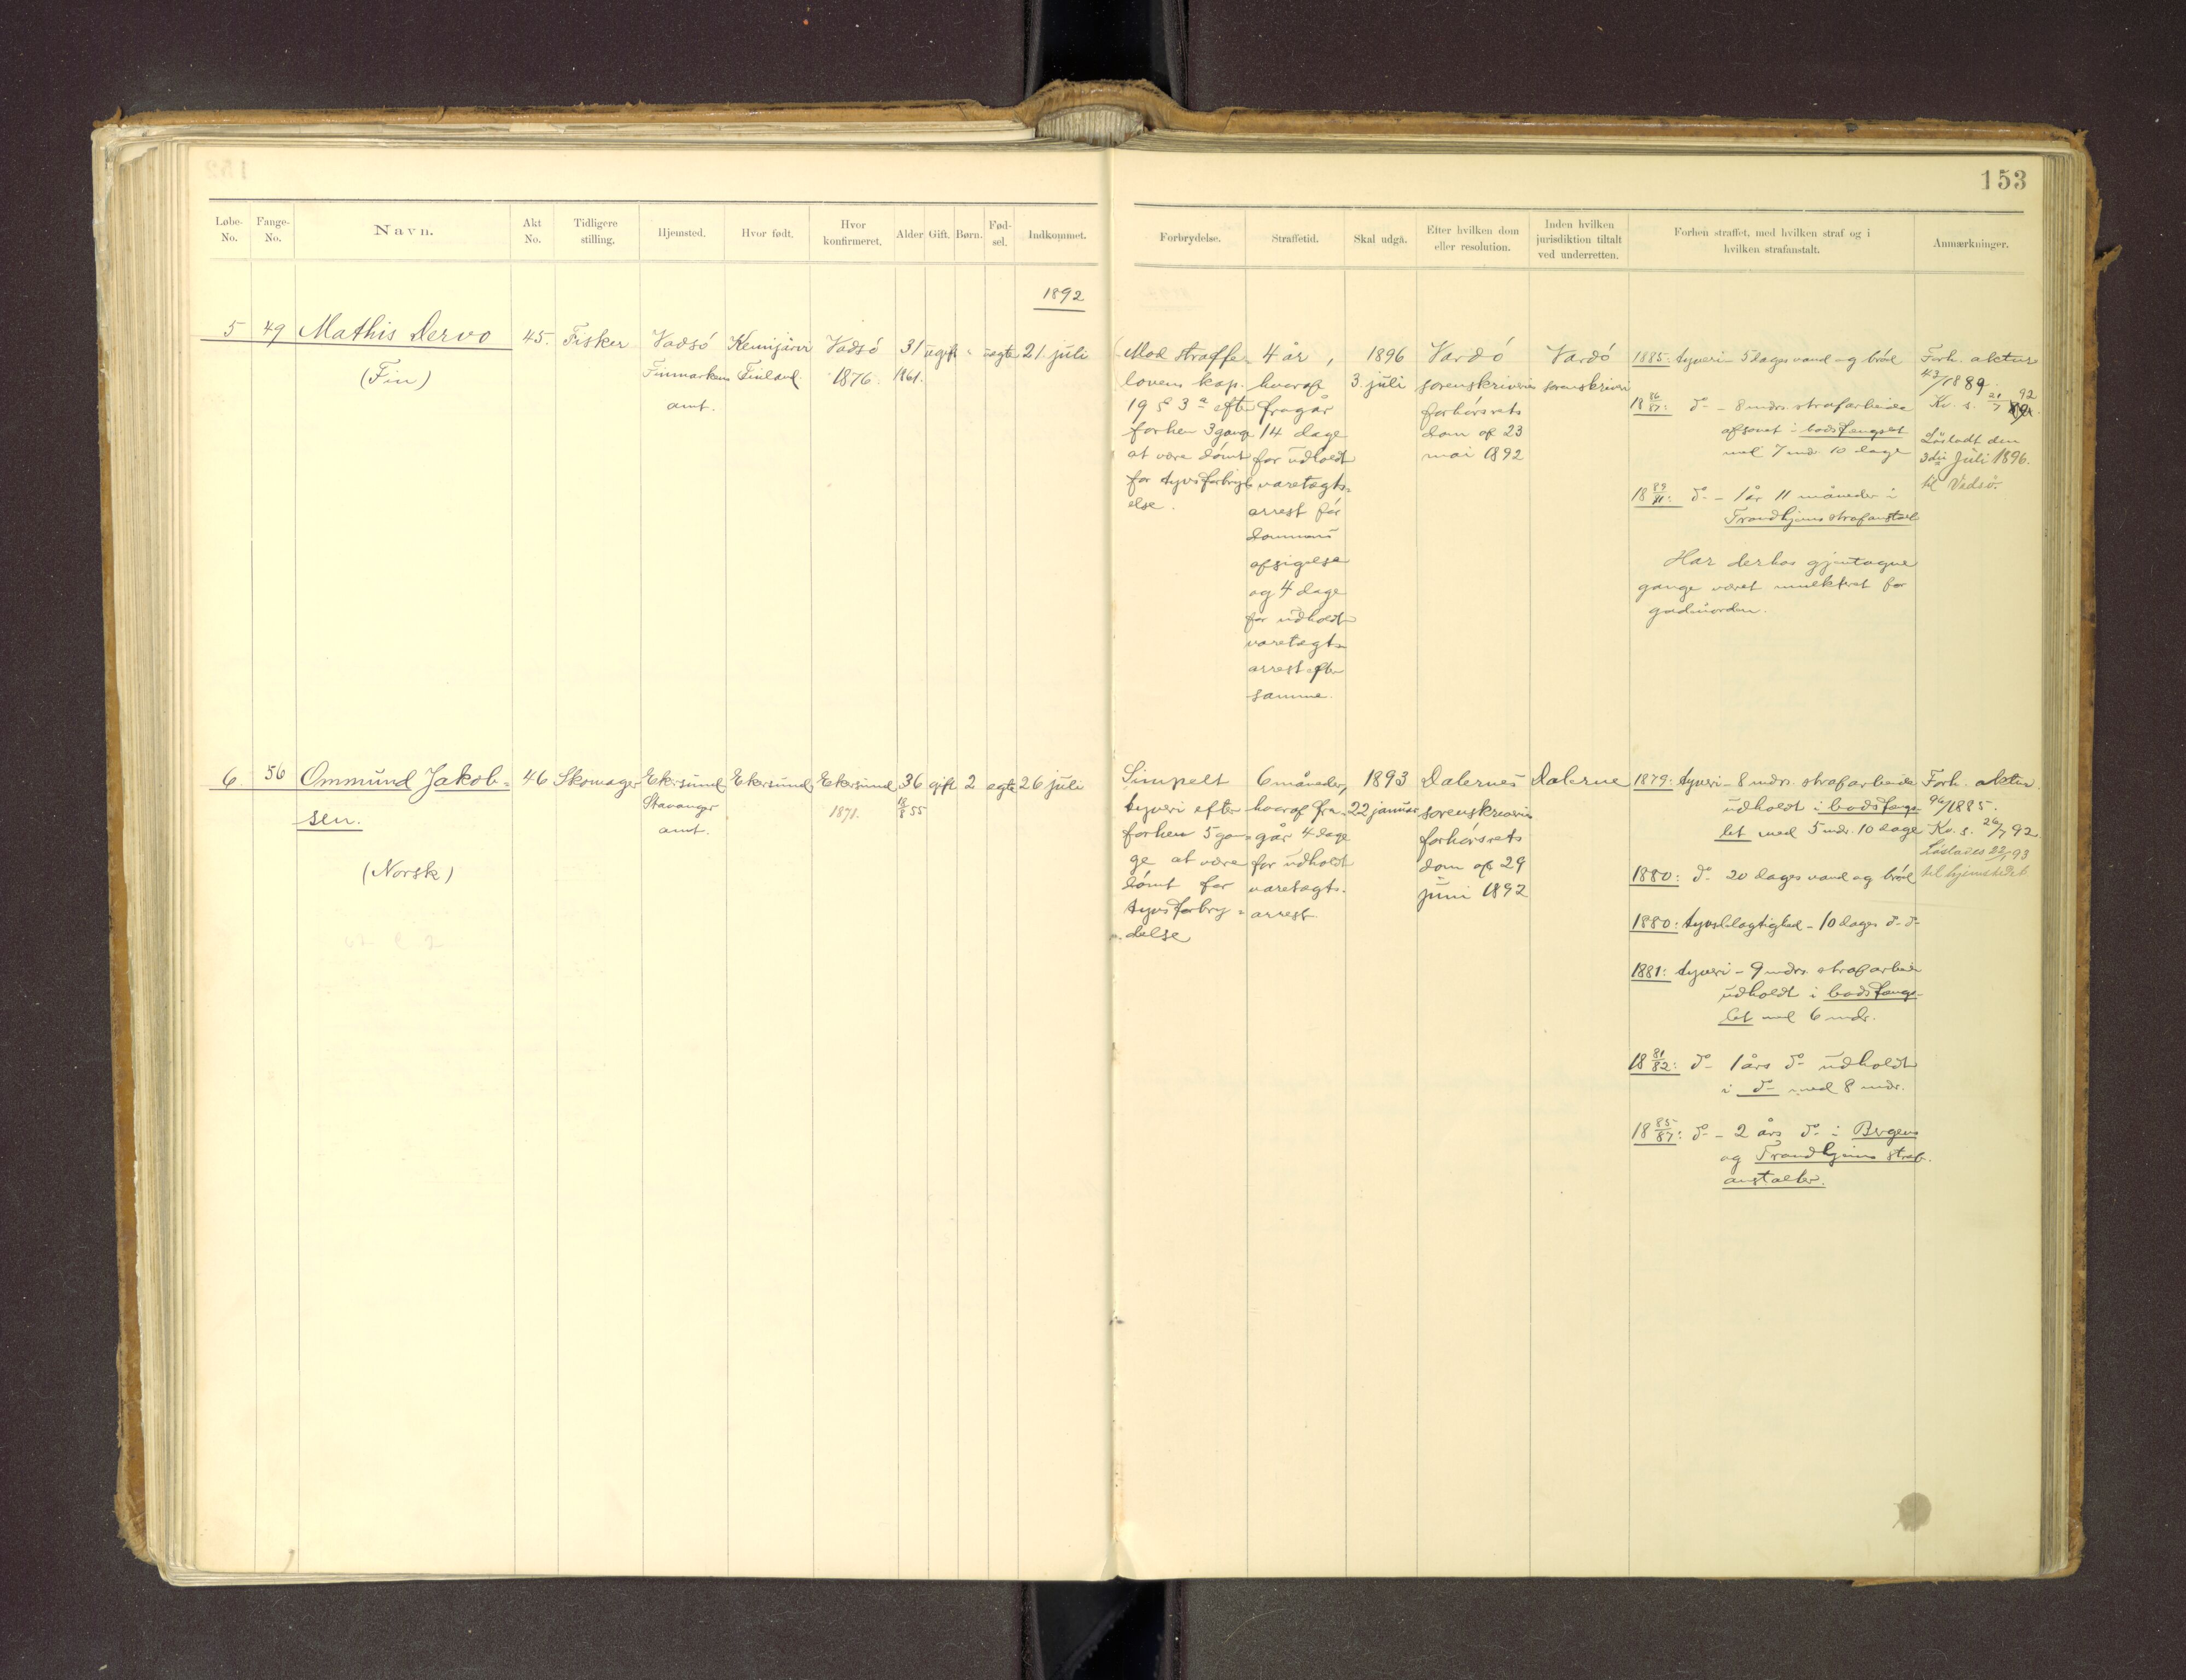 153
Løbe-No. Fange-No. Navn. Akt No. Tidligere stilling. Hjemsted. Hvor født. Hvor konfirmeret. Alder Gift. Børn. Fødsel. Indkommet.
Forbrydelse. Straffetid. Skal udgå. Efter hvilken dom eller resolution. Inden hvilken jurisdiktion tiltalt ved underretten. Forhen straffet, med hvilken straf og i hvilken strafanstalt. Anmærkninger.
1892
5 49 Mathis Dervo 45. Fisker Vadsö Kemijärvi Vadsö 31 ugift " uagte 21 juli
(Fin) Finmarkens Finland. 1876. 1861.
amt.
Mod straffe-
lovens kap.
19 § 3 a efter
forhen 3 gange
at være dömt
for tyvsforbryd-
else.
4 år,
hvoraf
fragår
14 dage
for udholdt
varetægts-
arrest för
dommens
afsigelse
og 4 dage
for udholdt
varetægts-
arrest efter
samme.
1896
3. juli
Vardö
sorenskriveris
forhörsrets
dom af 23
mai 1892
Vardö
sorenskriveri
1885: tyveri - 5 dages vand og bröd
18 86/87: do - 8 mdrs. strafarbeide
afsonet i bodsfengslet
med 7 mdr. 10 dage
18 89/91: do - 1 år 11 måneder i
Trondhjems strafanstalt
Har derhos gjentagne
gange været mulkteret for
gadeuorden.
Forh. aktur
43/1889.
Kv. s. 21/7 92
Lösladt den
3die Juli 1896.
til Vadsö.
6. 56 Ommund Jakob- 46 Skomager Ekersund Ekersund Ekersund 36 gift 2 egte 26 juli
sen. Stavanger 1871. 18/8 55
amt.
(Norsk)
Simpelt
tyveri efter
forhen 5 gan-
ge at være
dömt for
tyvsforbry-
delse
6 måneder,
hvoraf fra-
går 4 dage
for udholdt
varetægts-
arrest.
1893
22 januar
Dalernes
sorenskriveris
forhörsrets
dom af 29
juni 1892
Dalerne
1879: tyveri - 8 mdrs. strafarbeide
udholdt i bodsfængs-
let med 5 mdr. 10 dage
1880: do 20 dages vand og bröd
1880: tyvsdelagtighed - 10 dages do do
1881: tyveri - 9 mdrs. strafarbeide
udholdt i bodsfængs-
let med 6 mdr.
18 81/82: do 1 års do udholdt
i do med 8 mdr.
18 85/87: do - 2 års do i Bergens
og Trondhjems straf-
anstalter.
Forh. aktur.
96/1885.
Kv. s. 26/7 92
Löslades 22/1 93
til hjemstedet